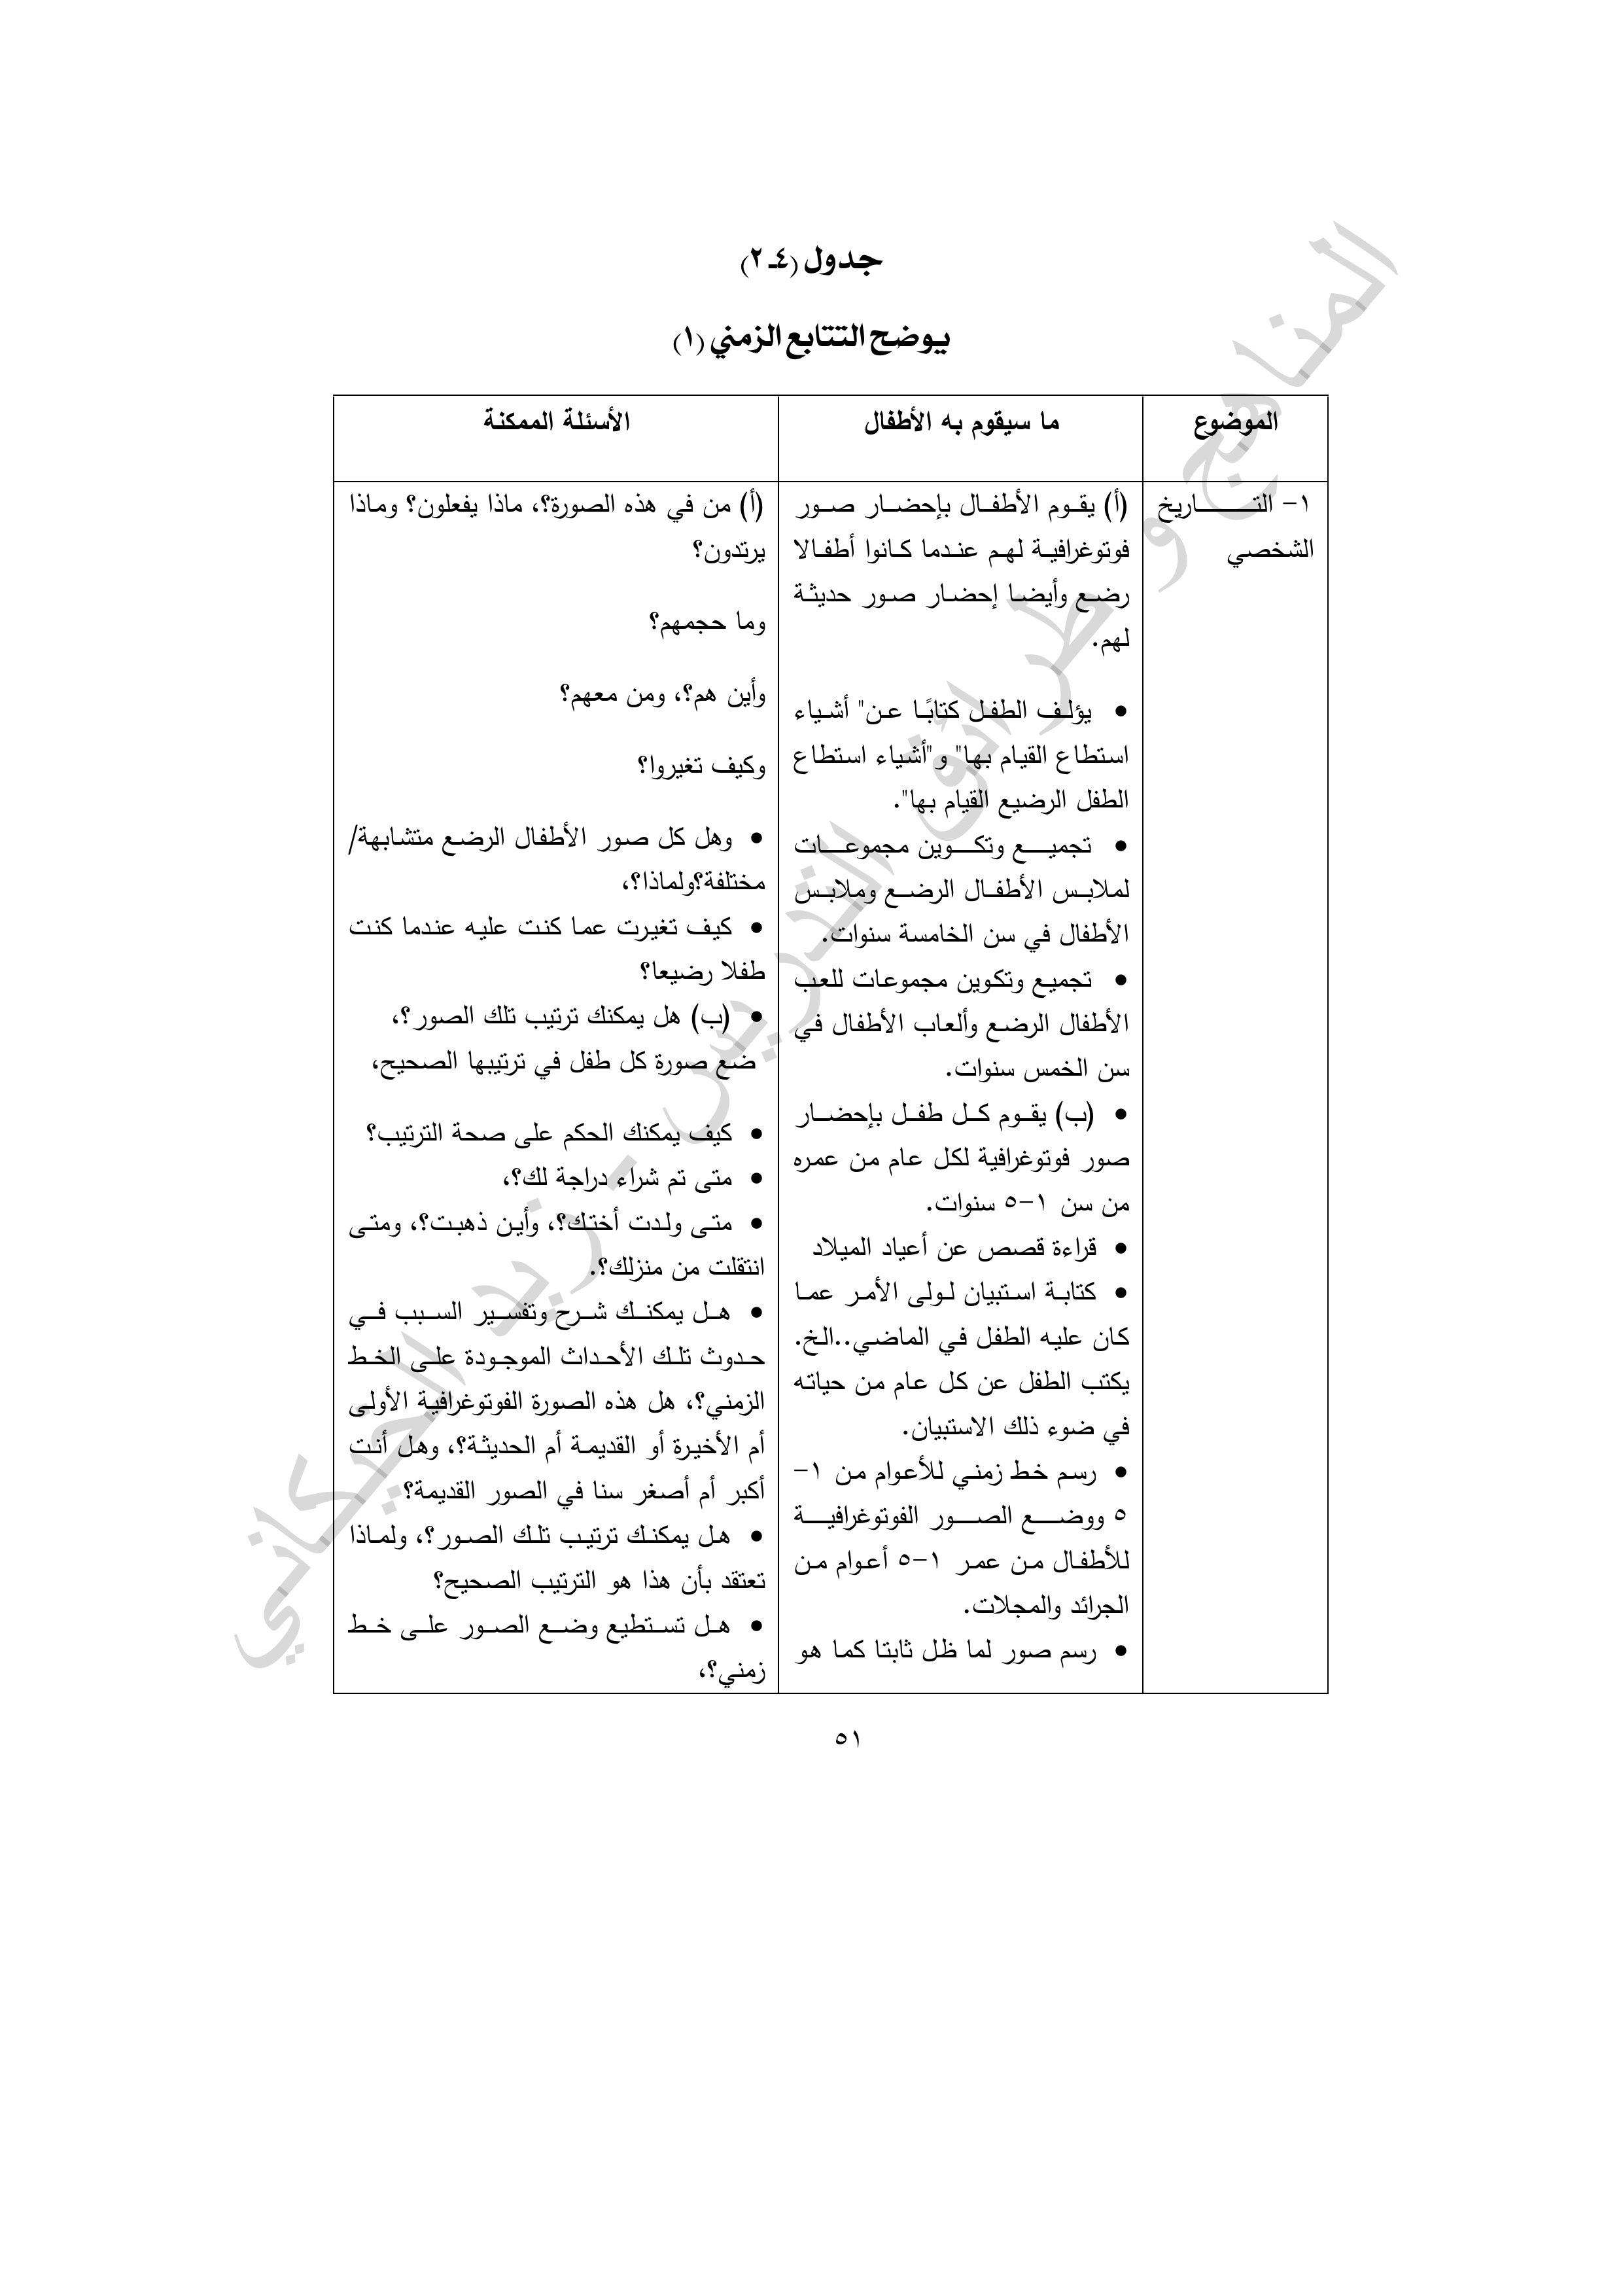 جدول (٤ـ ٢)
يوضح التتابع الزمني (١)
الموضوع
ما سيقوم به الأطفال
الأسئلة الممكنة
١- التاريخ
الشخصي
(أ) يقوم الأطفال بإحضار صور
فوتوغرافية لهم عندما كانوا أطفالا
رضع وأيضا إحضار صور حديثة
لهم.
• يؤلف الطفل كتابًا عن" أشياء
استطاع القيام بها" و"أشياء استطاع
الطفل الرضيع القيام بها".
• تجميع وتكوين مجموعات
لملابس الأطفال الرضع وملابس
الأطفال في سن الخامسة سنوات.
• تجميع وتكوين مجموعات للعب
الأطفال الرضع وألعاب الأطفال في
سن الخمس سنوات.
• (ب) يقوم كل طفل بإحضار
صور فوتوغرافية لكل عام من عمره
من سن ١-٥ سنوات.
• قراءة قصص عن أعياد الميلاد
• كتابة استبيان لولى الأمر عما
كان عليه الطفل في الماضي..الخ.
يكتب الطفل عن كل عام من حياته
في ضوء ذلك الاستبيان.
• رسم خط زمني للأعوام من ١-
٥ ووضع الصور الفوتوغرافية
للأطفال من عمر ١-٥ أعوام من
الجرائد والمجلات.
• رسم صور لما ظل ثابتا كما هو
(أ) من في هذه الصورة؟، ماذا يفعلون؟ وماذا
يرتدون؟
وما حجمهم؟
وأين هم؟، ومن معهم؟
وكيف تغيروا؟
• وهل كل صور الأطفال الرضع متشابهة/
مختلفة؟ولماذا؟،
• كيف تغيرت عما كنت عليه عندما كنت
طفلا رضيعا؟
• (ب) هل يمكنك ترتيب تلك الصور؟،
ضع صورة كل طفل في ترتيبها الصحيح،
• كيف يمكنك الحكم على صحة الترتيب؟
• متى تم شراء دراجة لك؟،
• متى ولدت أختك؟، وأين ذهبت؟، ومتى
انتقلت من منزلك؟.
• هل يمكنك شرح وتفسير السبب في
حدوث تلك الأحداث الموجودة على الخط
الزمني؟، هل هذه الصورة الفوتوغرافية الأولى
أم الأخيرة أو القديمة أم الحديثة؟، وهل أنت
أكبر أم أصغر سنا في الصور القديمة؟
• هل يمكنك ترتيب تلك الصور؟، ولماذا
تعتقد بأن هذا هو الترتيب الصحيح؟
• هل تستطيع وضع الصور على خط
زمني؟،
٥١
المناهج و طرائق التدريس - زيد الچيكاني